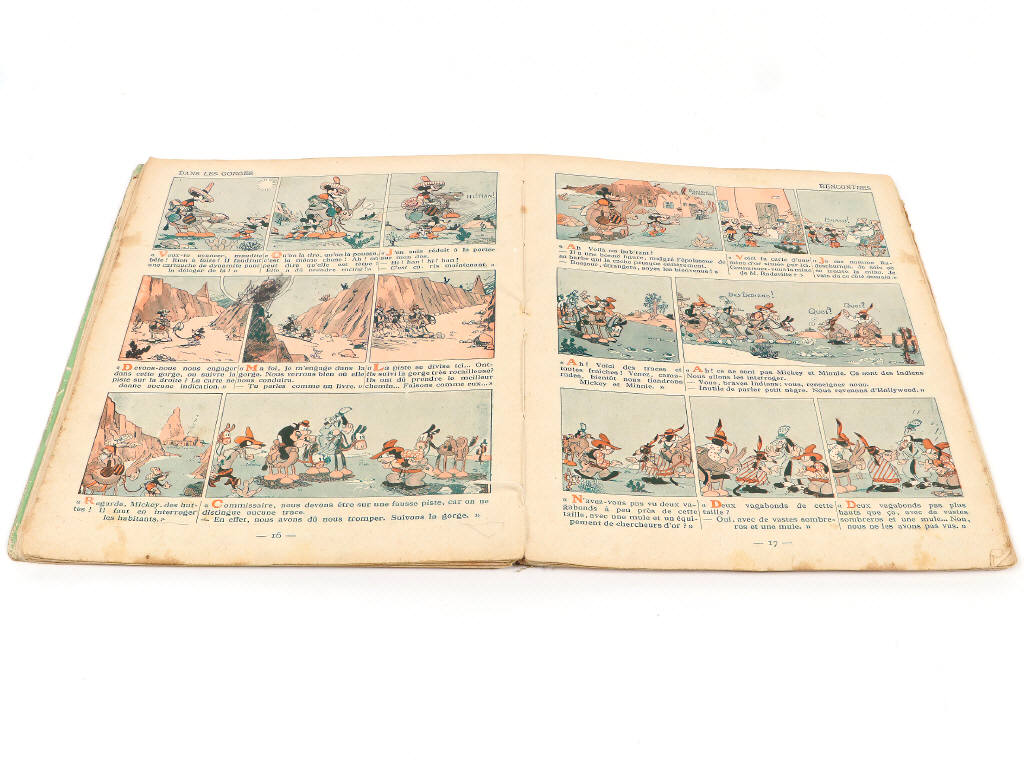 DANS LES GORGES
HI! HAN!
« Veux-tu avancer, maudite
bête! Rien à faire! Il faudrait
une cartouche de dynamite pour
la déloger de là! »
Qu'on la tire, qu'on la pousse,
c'est la même chose! Ah! on
peut dire qu'elle est têtue!
Elle a dû prendre racine!
« J'en suis réduit à la porter
sur mon dos.
— Hi! han! hi! han!
— C'est
maintenant. »
« Devons-nous nous engager
dans cette gorge, ou suivre la
piste sur la droite! La carte ne
donne aucune indication. »
« Ma foi, je m'engage dans la
gorge. Nous verrons bien où elle
nous conduira.
— Tu parles comme un livre. »
« La piste se divise ici... Ont-
ils suivi la gorge très rocailleuse?
Ils ont dû prendre le meilleur
chemin... Faisons comme eux... »
« Regarde, Mickey, des hut-
tes! Il faut en interroger
les habitants. »
« Commissaire, nous devons être sur une fausse piste, car on ne
distingue aucune trace.
— En effet, nous avons dû nous tromper. Suivons la gorge. »
— 16 —
RENCONTRES
« Ah! Voilà un habitant!
— Il a une bonne figure, malgré l'épaisseur de
sa barbe qui le cache presque entièrement.
— Bonjour, étrangers, soyez les bienvenus! »
DES INDIENS!
QUOI?
QUOI?
« Ah! Voici des traces et
toutes fraîches! Venez, cama-
rades, bientôt nous tiendrons
Mickey et Minnie. »
« Ah! ce ne sont pas Mickey et Minnie. Ce sont des Indiens
Nous allons les interroger.
— Vous, braves Indiens; vous, renseigner nous.
— Inutile de parler petit nègre. Nous revenons d'Hollywood. »
« N'avez-vous pas vu deux va-
gabonds à peu près de cette
taille, avec une mule et un équi-
pement de chercheurs d'or? »
« Deux vagabonds de cette
taille?
— Oui, avec de vastes sombre-
ros et une mule. »
« Deux vagabonds pas plus
hauts que ça, avec de vastes
sombreros et une mule... Non,
nous ne les avons pas vus. »
— 17 —